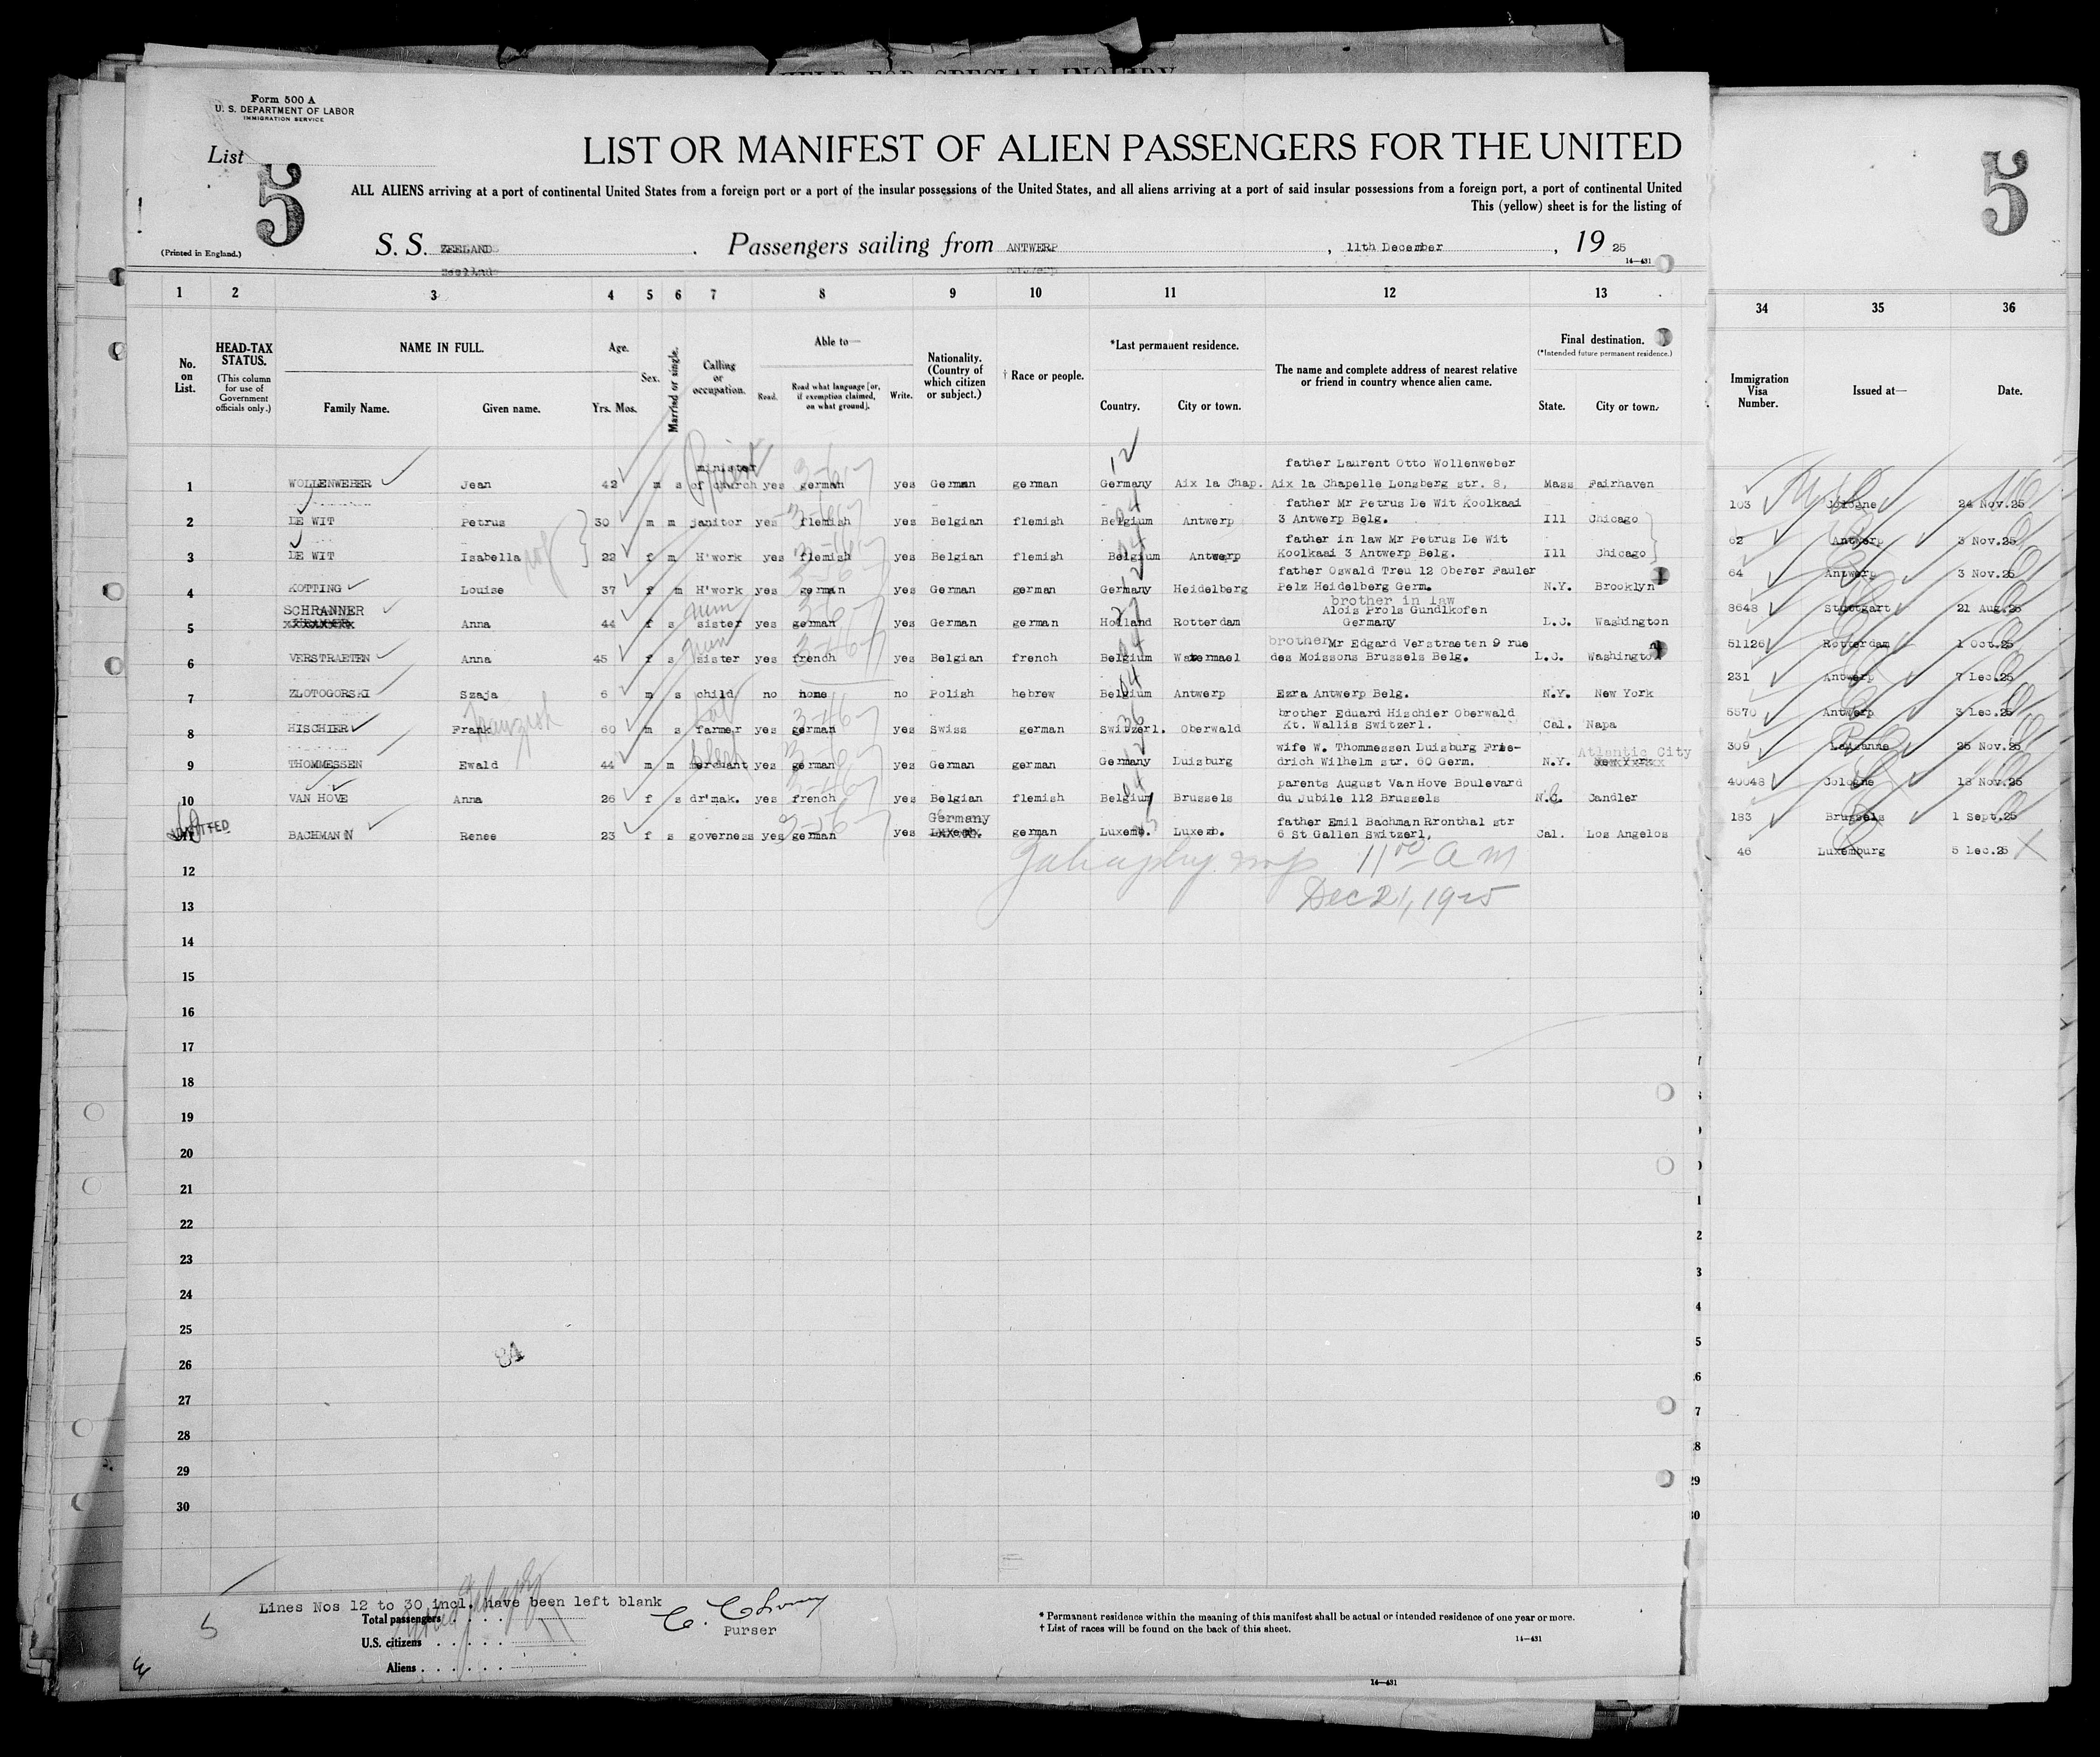 HELD FOR SPECIAL INQUIRY
Form 500 A
U. S. DEPARTMENT OF LABOR
IMMIGRATION SERVICE
List 5
(Printed in England.)
LIST OR MANIFEST OF ALIEN PASSENGERS FOR THE UNITED
ALL ALIENS arriving at a port of continental United States from a foreign port or a port of the insular possessions of the United States, and all aliens arriving at a port of said insular possessions from a foreign port, a port of continental United
This (yellow) sheet is for the listing of
S. S. ZEELAND . Passengers sailing from ANTWERP , 11th December , 19 25
14—431
5
1 2 3 4 5 6 7 8 9 10 11 12 13 34 35 36
No. on List.
HEAD-TAX STATUS.
(This column for use of Government officials only.)
NAME IN FULL.
Family Name. Given name.
Age.
Yrs. Mos.
Sex.
Married or single.
Calling or occupation.
Able to—
Read. Read what language [or, if exemption claimed, on what ground]. Write.
Nationality. (Country of which citizen or subject.)
† Race or people.
*Last permanent residence.
Country. City or town.
The name and complete address of nearest relative or friend in country whence alien came.
Final destination.
(*Intended future permanent residence.)
State. City or town.
Immigration Visa Number.
Issued at—
Date.
1 WOLLENWEBER Jean 42 m s minister of church yes german yes German german Germany Aix la Chap. father Laurent Otto Wollenweber Aix la Chapelle Lonsberg str. 8, Mass Fairhaven 103 Cologne 24 Nov.25
2 DE WIT Petrus 30 m m janitor yes flemish yes Belgian flemish Belgium Antwerp father Mr Petrus De Wit Koolkaai 3 Antwerp Belg. Ill Chicago 62 Antwerp 3 Nov.25
3 DE WIT Isabella 22 f m H'work yes flemish yes Belgian flemish Belgium Antwerp father in law Mr Petrus De Wit Koolkaai 3 Antwerp Belg. Ill Chicago 64 Antwerp 3 Nov.25
4 KOTTING Louise 37 f m H'work yes german yes German german Germany Heidelberg father Oswald Treu 12 Oberer Fauler Pelz Heidelberg Germ. N.Y. Brooklyn 8648 Stuttgart 21 Aug.25
5 SCHRANNER Anna 44 f s sister nun yes german yes German german Holland Rotterdam brother in law Alois Prols Gundlkofen Germany D.C. Washington 51126 Rotterdam 1 Oct.25
6 VERSTRAETEN Anna 45 f s sister nun yes french yes Belgian french Belgium Watermael brother Mr Edgard Verstraeten 9 rue des Moissons Brussels Belg. D.C. Washington 231 Antwerp 7 Dec.25
7 ZLOTOGORSKI Szaja 6 m s child no none no Polish hebrew Belgium Antwerp Ezra Antwerp Belg. N.Y. New York 5570 Antwerp 3 Dec.25
8 HISCHIER Frank 60 m s farmer yes german yes Swiss german Switzerl. Oberwald brother Eduard Hischier Oberwald Kt. Wallis Switzerl. Cal. Napa 309 Lausanne 25 Nov.25
9 THOMMESSEN Ewald 44 m m merchant yes german yes German german Germany Duisburg wife W. Thommessen Duisburg Frie- drich Wilhelm str. 60 Germ. N.Y. Atlantic City 40048 Cologne 18 Nov.25
10 VAN HOVE Anna 26 f s dr'mak. yes french yes Belgian flemish Belgium Brussels parents August Van Hove Boulevard du Jubile 112 Brussels N.C. Candler 183 Brussels 1 Sept.25
11 ADMITTED BACHMANN Renee 23 f s governess yes german yes Germany german Luxemb. Luxemb. father Emil Bachman Rronthal str 6 St Gallen Switzerl, Cal. Los Angelos 46 Luxembourg 5 Dec.25
11 00 AM
Dec 21, 1925
12
13
14
15
16
17
18
19
20
21
22
23
24
25
26
27
28
29
30
84
Lines Nos 12 to 30 incl. have been left blank
Total passengers
U.S. citizens
Aliens
Purser
* Permanent residence within the meaning of this manifest shall be actual or intended residence of one year or more.
† List of races will be found on the back of this sheet.
14—431
14—431